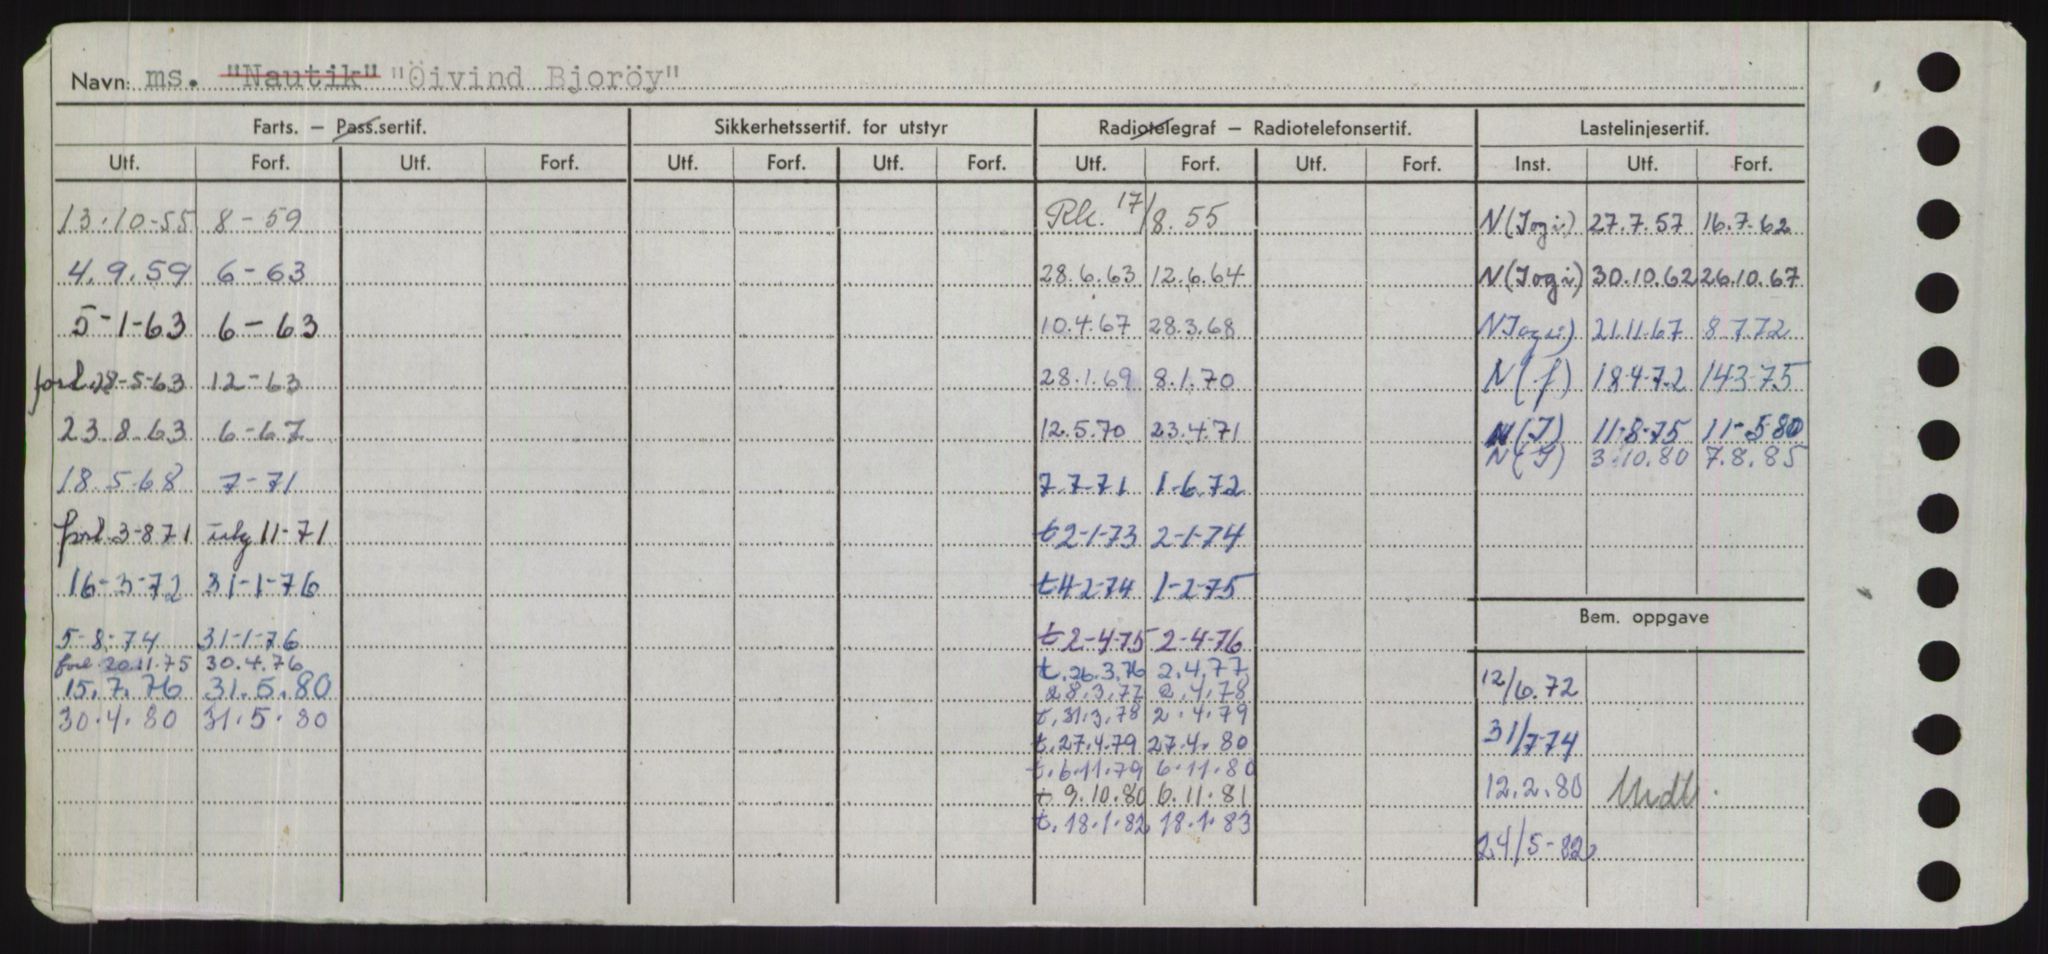 Navn: ms. "Nautik" "Öivind Bjoröy"
Farts. – Pass.sertif. Sikkerhetssertif. for utstyr Radiotelegraf – Radiotelefonsertif. Lastelinjesertif.
Utf. Forf. Utf. Forf. Utf. Forf. Utf. Forf. Utf. Forf. Utf. Forf. Inst. Utf. Forf.
13.10-55 8-59 Rk. 17/8.55 N(Iogi) 27.7.57 16.7.62
4.9.59 6-63 28.6.63 12.6.64 N(Iogi) 30.10.62 26.10.67
5-1-63 6-63 10.4.67 28.3.68 N Iogi) 21.11.67 8 7.72
forl. 28-5-63 12-63 28.1.69 8.1.70 N(f) 18472 14375
23.8.63 6-67 12.5.70 23.4.71 N(I) 11-8-75 11-580
N(I) 3.10.80 7.8.85
18.5.68 7-71 7.7.71 1-6.72
forl. 3-871 11-71 t2-1-73 2-1-74
16-3-72 31-1-76 t4-2-74 1-2-75
Bem. oppgave
5-8-74 31-1-76 t2-4-75 2-4-76
forl. 20.11.75 30.4.76 t.26.3.76 2.4.77
15.7.76 31.5.80 28.3.77 2.4.78 12/6.72
30.4.80 31.5.80 t.31.3.78 2.4.79
t.27.4.79 27.4.80 31/7-74
t.6.11.79 6.11.80
t 9.10.80 6.11.81 12.2.80 Undt.
t.18.1.82 18.1.83
24/5-82